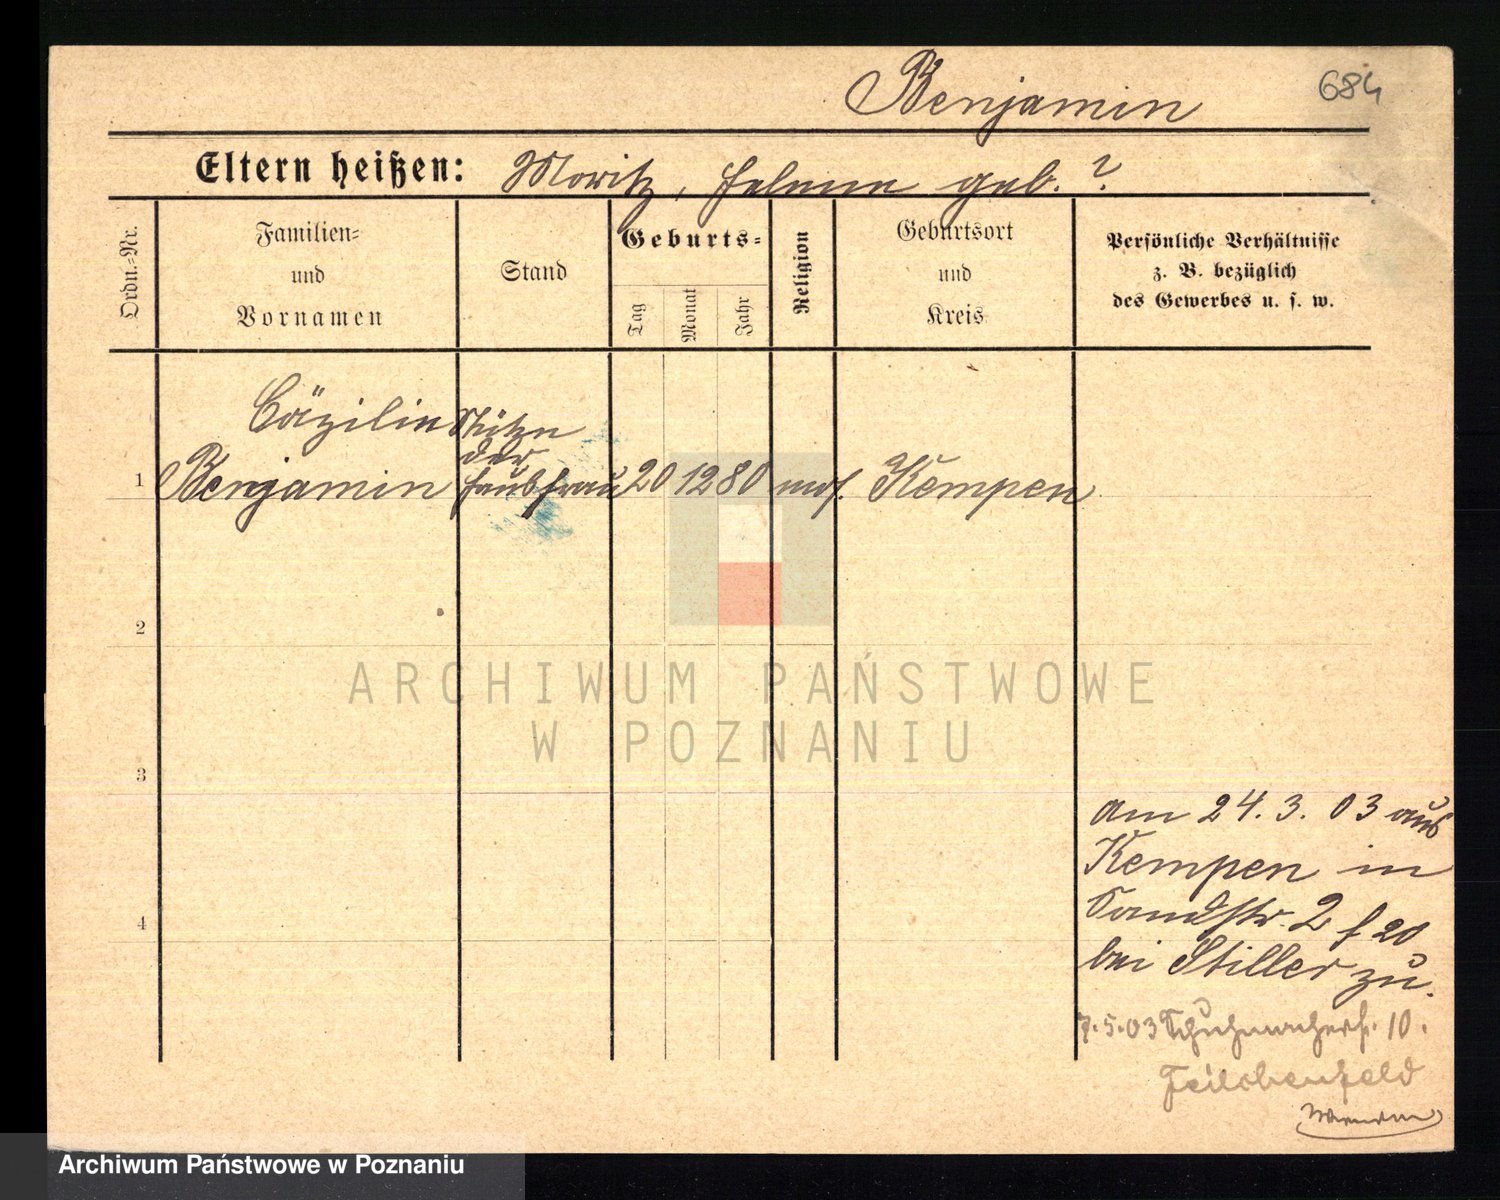 Benjamin
684
Eltern heißen: Moritz, Helene geb. ?
Ordn.-Nr.
Familien-
und
Vornamen
Stand
Geburts-
Tag
Monat
Jahr
Religion
Geburtsort
und
Kreis
Persönliche Verhältnisse
z. B. bezüglich
des Gewerbes u. s. w.
1
Cäzilie
Benjamin
Stütze
der
Hausfrau
20 12 80 mos. Kempen
2
3
4
ARCHIWUM PAŃSTWOWE
W POZNANIU
am 24. 3. 03 aus
Kempen in
Sandstr. 2 f 20
bei Stiller zu.
7.5.03 Schuhmacherstr. 10.
Feilchenfeld
Archiwum Państwowe w Poznaniu